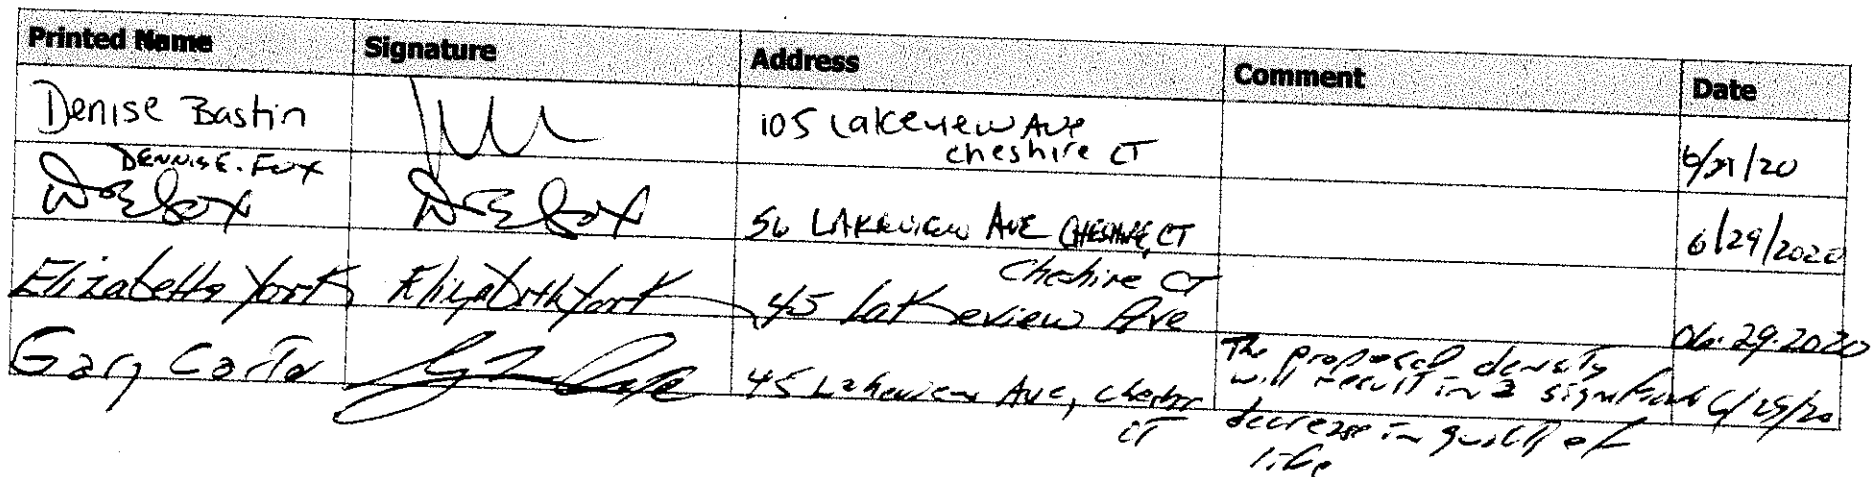 Printed Name Signature Address Comment Date
Denise Bastin 105 Lakeview Ave
Cheshire CT
/20
DENNIS E. FOX
DEFox DEFox 56 LAKEVIEW AVE CHESHIRE, CT 6/29/2020
Cheshire CT
Elizabeth York Elizabeth York 45 Lakeview Ave 06.29.2020
Gary Carter 45 Lakeview Ave, Cheshire
CT
The proposed density
will result in a significant 6/29/20
decrease in quality of
life